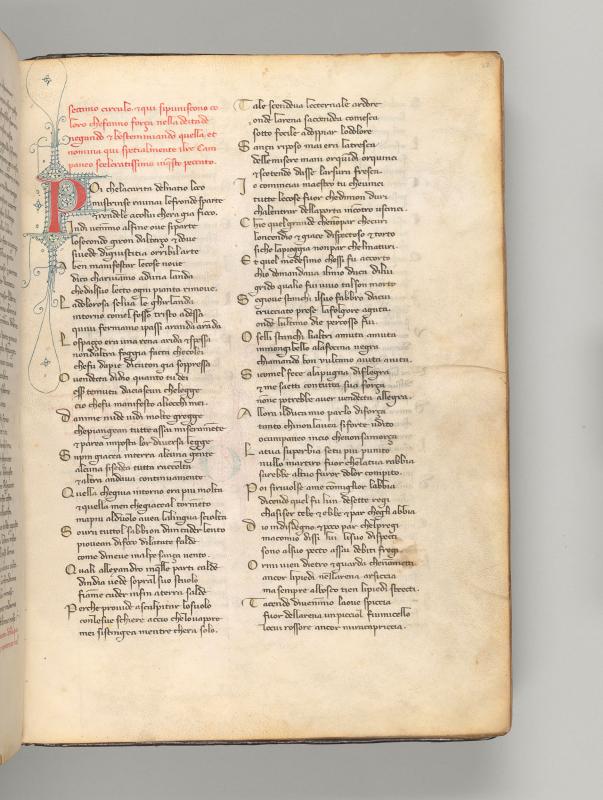 settimo circulo. et qui sipuniscono co
loro che fanno força nella deitade
negando et bestemmiando quella. et
nomina qui spetialmente il re Cam
paneo sceleratissimo in questo peccato.
Poi chelacarita delnatio loco
mistrinse raunai lefronde sparte
et rendele acolui chera gia fioco.
Indi venimo alfine oue siparte
losecondo giron dalterço et doue
siuede digiustitia orribil arte
A ben manifestar lecose noue
dico chariuamo aduna landa
chedalsuo lecto ogni pianta rimoue.
L adolorosa selua le ghirlanda
intorno comel fosso tristo adessa
quiui fermamo ipassi aranda aranda
L ospaço era una rena arida et spessa
non daltra foggia facta checolei
chefu dapie dicaton gia soppressa
O uendetta didio quanto tu dei
esser temuta daciascun chelegge
cio chefu manifesto aliocchi mei.
D anime nude uidi molte gregge
chepiangean tutte assai miseramente
et parea imposta lor diuersa legge
S upin giacea interra alcuna gente
alcuna sisedea tutta raccolta
et altra andaua continuamente
Q uella chegiua intorno era piu molta
et quella men chegiacea al tormento
ma piu alduolo auea lalingua sciolta
S oura tuttol sabbion dun cader lento
piouean difoco dilatate falde
come dineue inalpe sança uento.
Q uali allexandro inquelle parti calde
dindia uide sopral suo stuolo
fiame cader infin aterra salde
P erche prouide ascalpitar losuolo
con lesue schiere accio chelouapore
mei sistingea mentre chera solo.
T ale scendeua lecternale ardore
onde larena saccendea comesca
sotto focile adoppiar lodolore
S ança riposo mai era latresca
dellemisere mani orquindi orquinci
et scotendo dasse larsura fresca.
I o cominciai maestro tu cheuinci
tutte lecose fuor chedimon duri
chalentrar dellaporta incontro uscinci.
C hie quel grande chenonpar checuri
loncendio et giace dispectoso et torto
siche lapioggia nonpar chelmaturi.
E t quel medesimo chessi fu accorto
chio domandaua ilmio duca dilui
grido qualio fui uiuo talson morto
S e gioue stanchi ilsuo fabbro dacui
crucciato prese lafolgore aguta.
onde lultimo die percosso fui.
O selli stanchi lialtri amuta amuta
inmongibello alafocina negra
chiamando bon vulcano aiuta aiuta.
S i comel fece alapugna diflegra
et me saetti contutta sua força
nonne potrebbe auer uendetta allegra.
A llora ilduca mio parlo diforça
tanto chinonlauea siforte udito
o campaneo incio chenonsamorça
L atua superbia setu piu punito
nullo martiro fuor chelatua rabbia
sarebbe altuo furor dolor compito.
P oi siriuolse ame conmiglior labbia
dicendo quel fu lun desette regi
chassiser tebe et ebbe et par chegli abbia
D io indisdegno et poco par chelpregi
ma comio dissi lui lisuoi dispecti
sono alsuo pecto assai debiti fregi
O r mi uien dietro et guarda chenonmetti
ancor lipiedi nellarena arsiccia
ma sempre albosco tien lipiedi strecti.
T acendo diuenimo laoue spiccia
fuor dellarena un picciol fiumicello
locui rossore ancor miracapriccia.